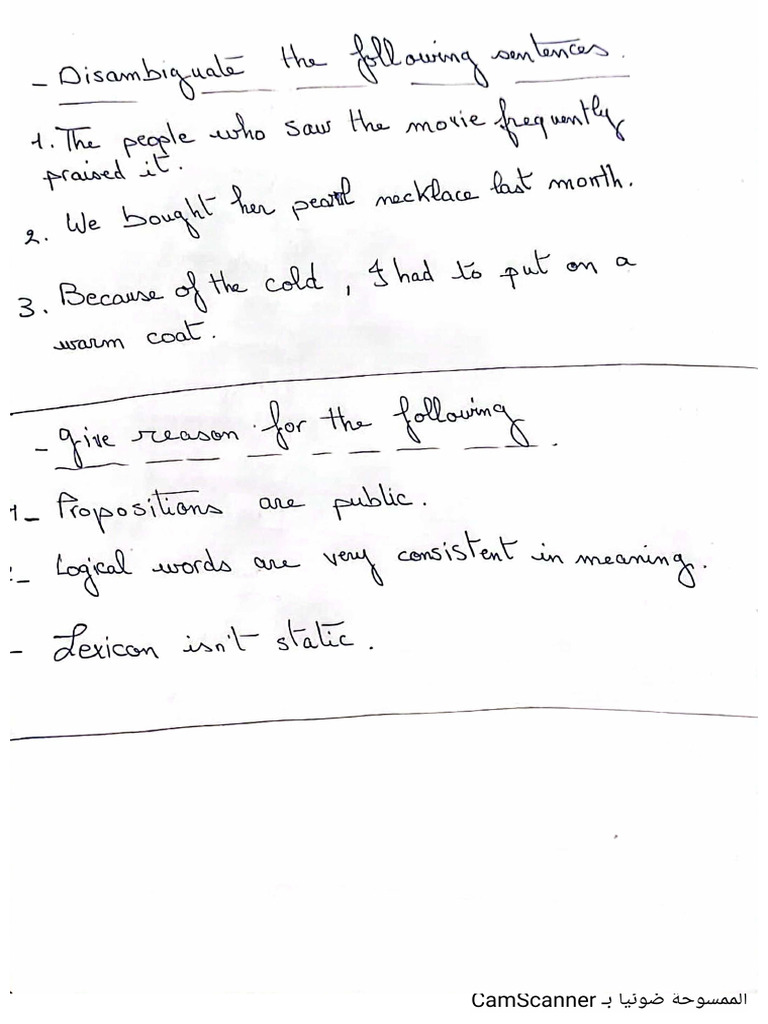 - Disambiguate the following sentences.
1. The people who saw the movie frequently
praised it.
2. We bought her pearl necklace last month.
3. Because of the cold, I had to put on a
warm coat.
- give reason for the following.
1- Propositions are public.
:- Logical words are very consistent in meaning.
- Lexicon isn't static.
الممسوحة ضوئيا بـ CamScanner